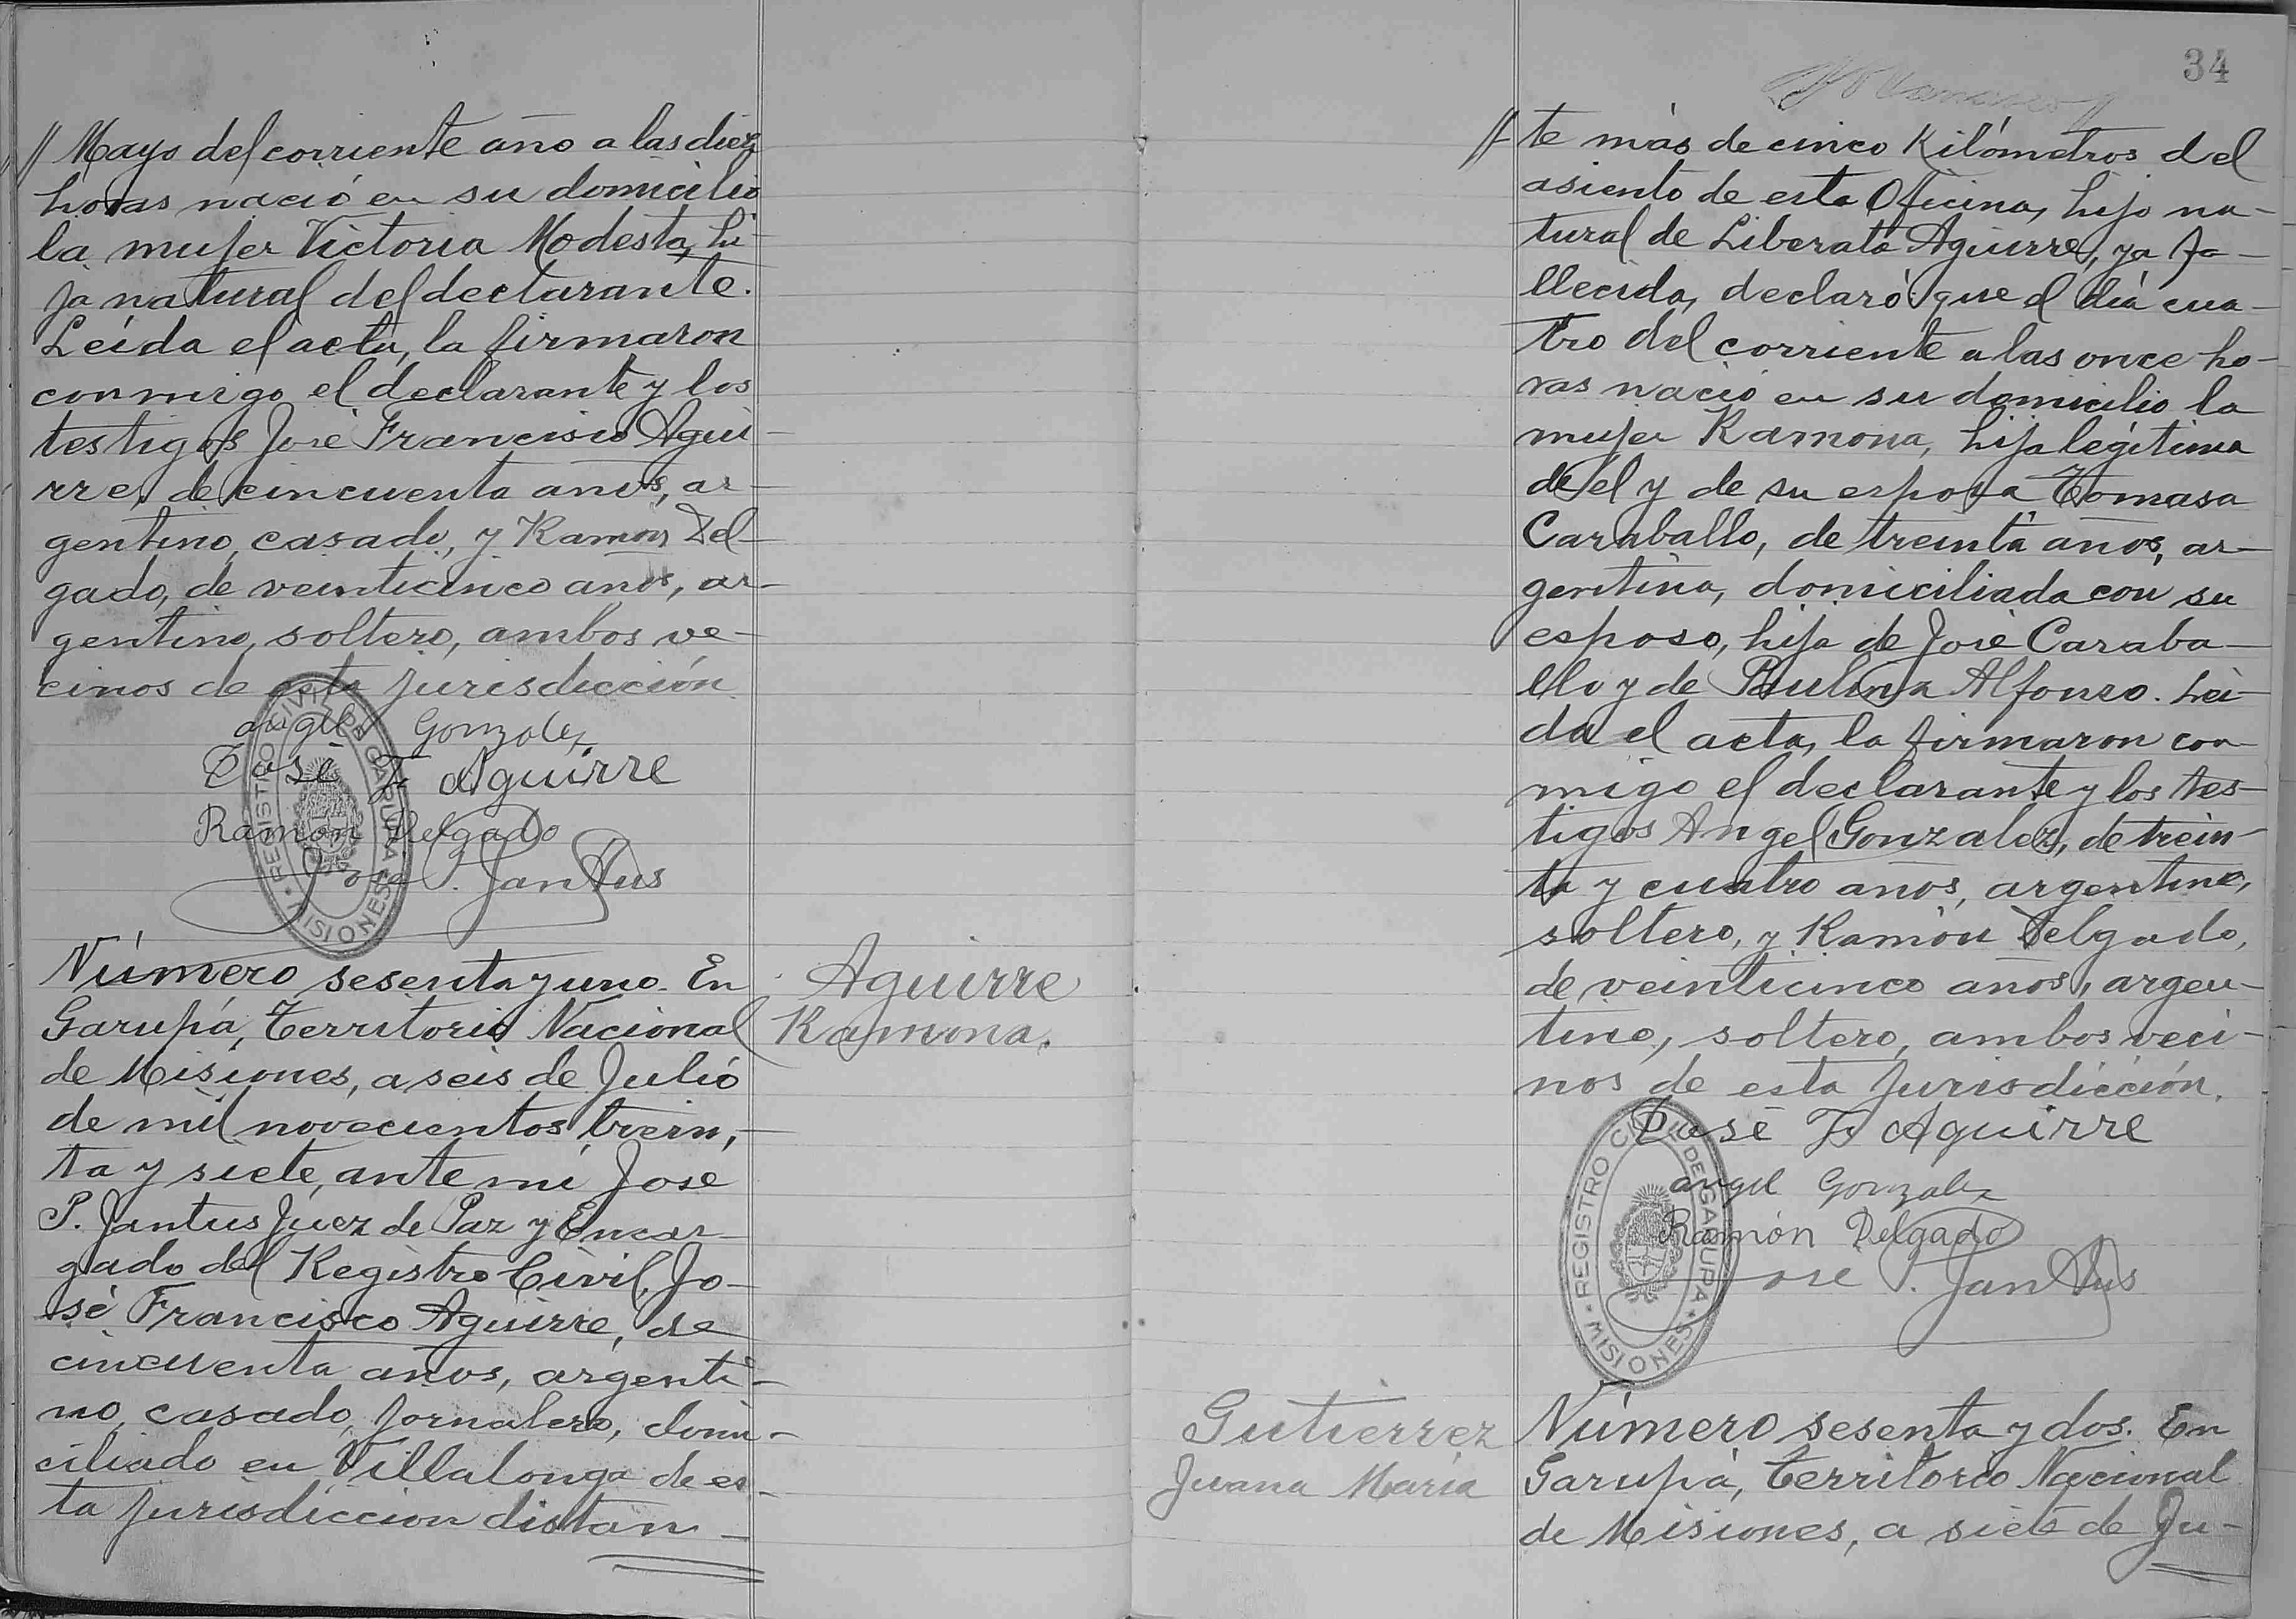 // Mayo del corriente año a las diez
horas nació en su domicilio
la mujer Victoria Modesta, hi-
ja natural del declarante.
Leída el acta, la firmaron
conmigo el declarante y los
testigos José Francisco Agui-
rre, de cincuenta años, ar-
gentino, casado, y Ramón Del-
gado, de veinticinco años, ar-
gentino, soltero, ambos ve-
cinos de esta jurisdicción
angel Gonzalez
José F Aguirre
Ramón Delgado
José P. Jantus
REGISTRO CIVIL DE GARUPA · MISIONES ·
Número sesenta y uno. En
Garupá, Territorio Nacional
de Misiones, a seis de Julio
de mil novecientos trein-
ta y siete, ante mí José
P. Jantus Juez de Paz y Encar-
gado del Registro Civil, Jo-
sé Francisco Aguirre, de
cincuenta años, argenti-
no, casado, jornalero, domi-
ciliado en Villalonga de es-
ta jurisdicción distan-
Aguirre
Ramona.
34
// te más de cinco Kilómetros del
asiento de esta Oficina, hijo na-
tural de Liberata Aguirre, ya fa-
llecida, declaró: que el día cua-
tro del corriente a las once ho-
ras nació en su domicilio la
mujer Ramona, hija legítima
de él y de su esposa Tomasa
Caraballo, de treinta años, ar-
gentina, domiciliada con su
esposo, hija de José Caraba-
llo y de Paulina Alfonso. Leí-
da el acta, la firmaron con-
migo el declarante y los tes-
tigos Angel Gonzalez, de trein-
ta y cuatro años, argentino,
soltero, y Ramón Delgado,
de veinticinco años, argen-
tino, soltero, ambos veci-
nos de esta jurisdicción.
José F Aguirre
angel Gonzalez
Ramón Delgado
José P. Jantus
REGISTRO CIVIL DE GARUPA · MISIONES ·
Gutierrez
Juana María
Número sesenta y dos. En
Garupá, Territorio Nacional
de Misiones, a siete de Ju-